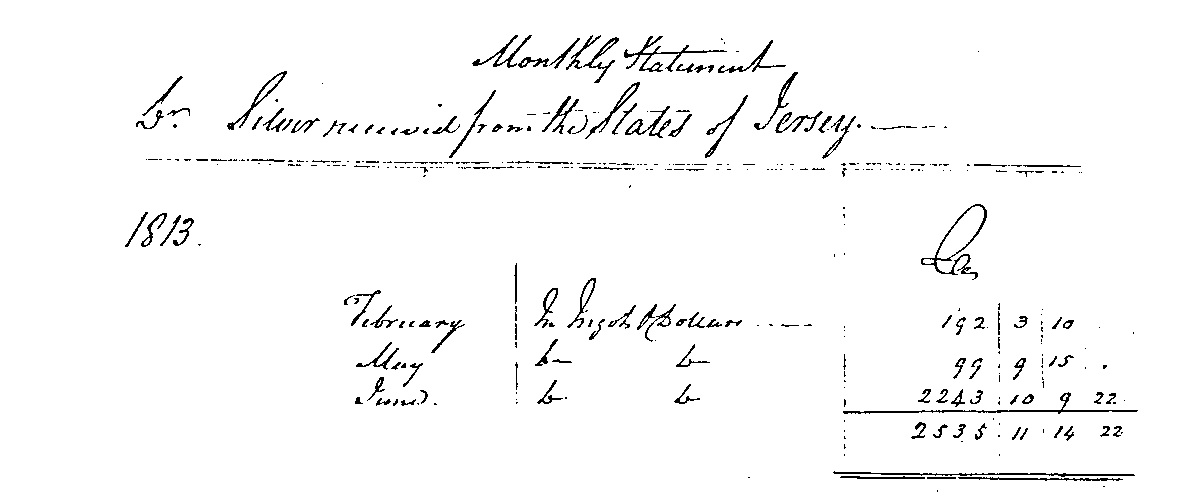 Monthly Statement
Dr. Silver received from the States of Jersey.
1813.
lbs
February In Ingots & Dollars 192 3 10
May Do Do 99 9 15 .
June. Do Do 2243 10 9 22
2535 11 14 22